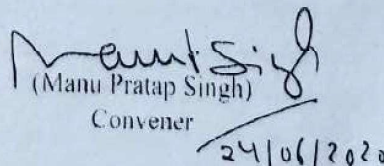 Manu Singh
(Manu Pratap Singh)
Convener
24/06/2020